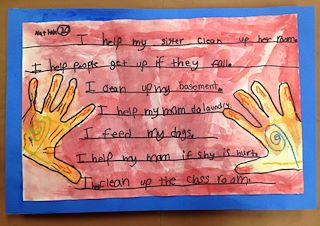 I help my sister clean up her room.
I help people get up if they fall.
I clean up my basement.
I help my mom do laundry.
I feed my dogs.
I help my mom if shy is hurt.
I clean up the class room.